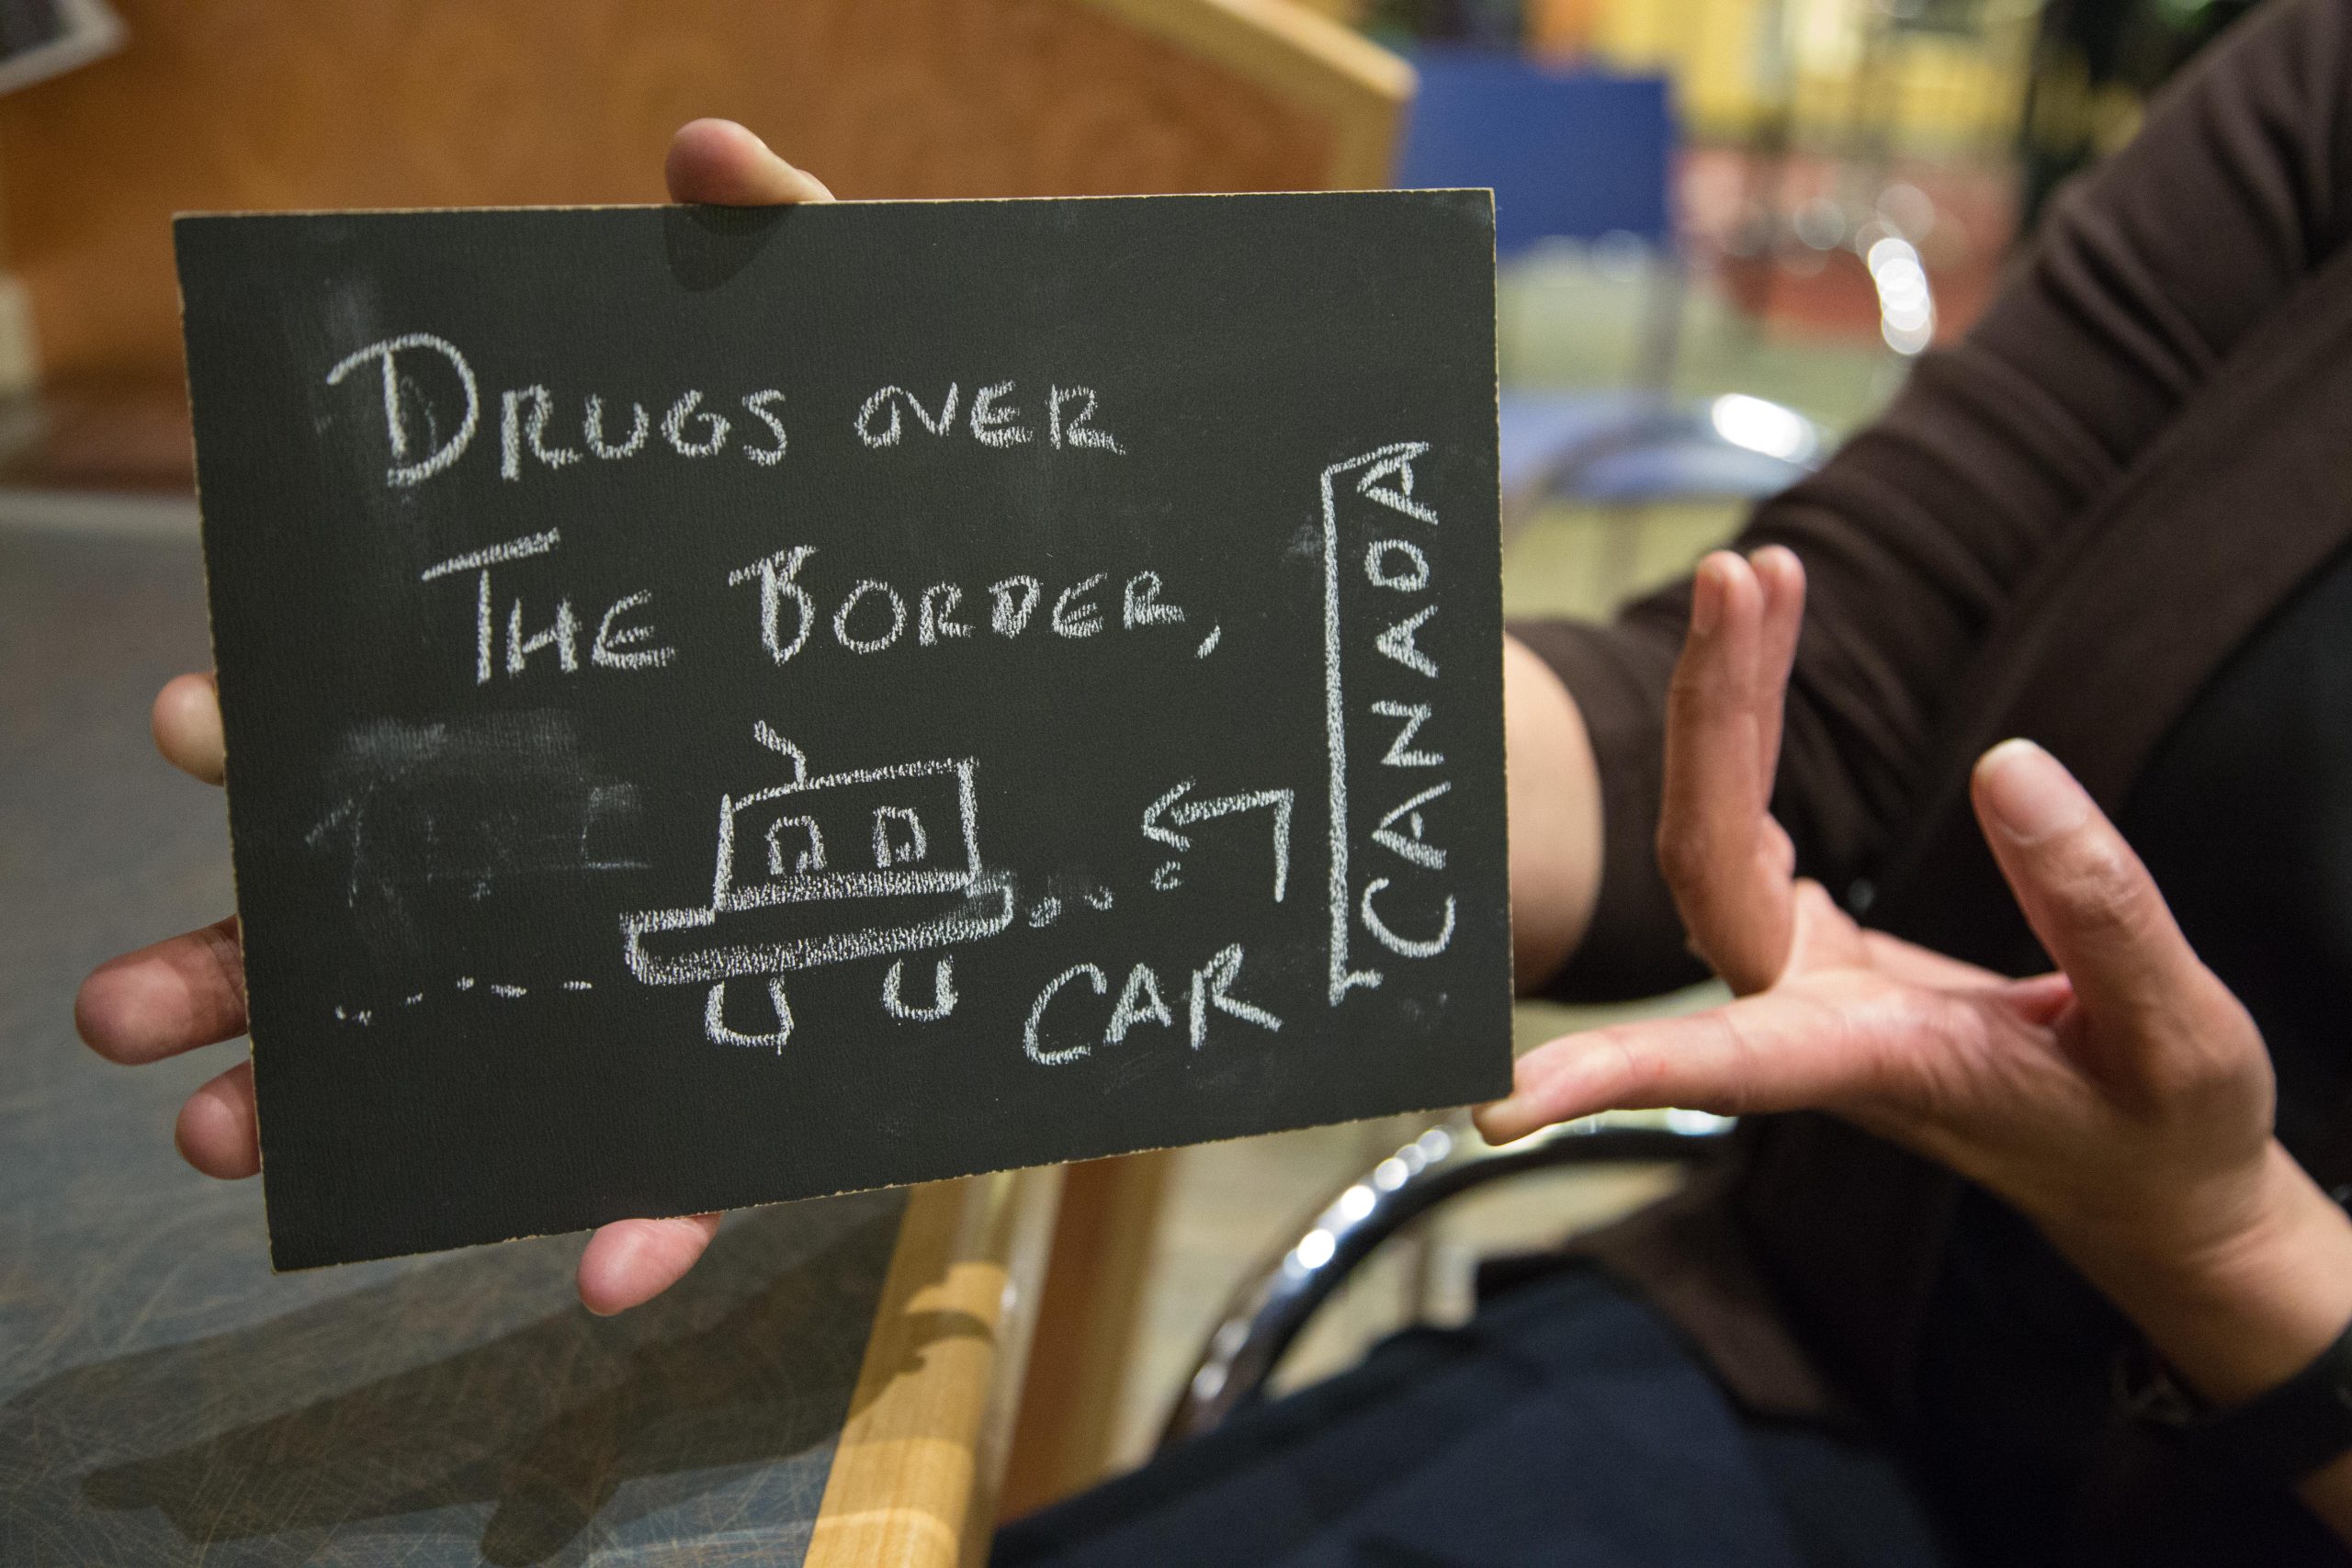 DRUGS OVER
THE BORDER,
CANADA
CAR